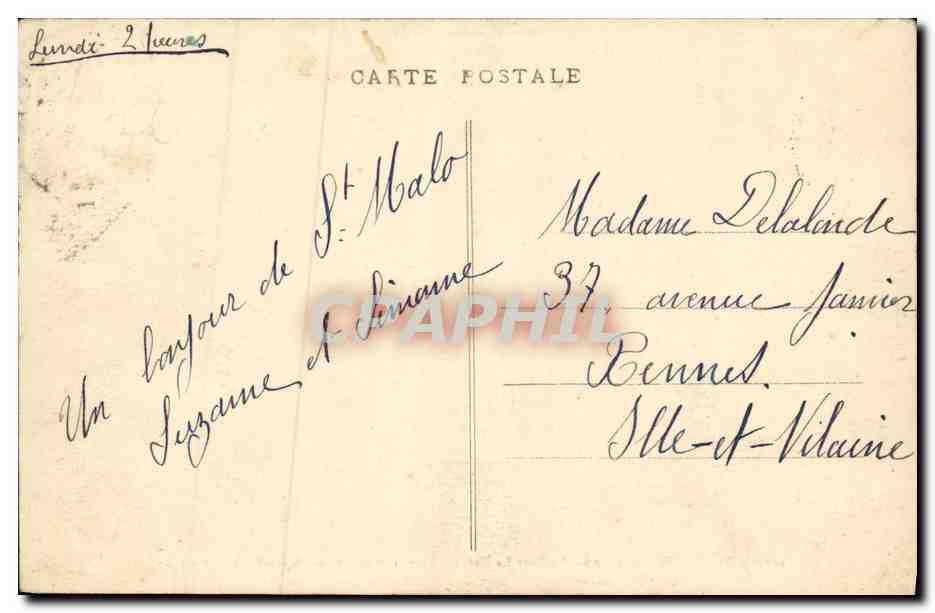 Lundi - 2 heures
CARTE POSTALE
Un bonjour de St Malo
Suzanne et Simonne
Madame Delalande
37, avenue Janvier
Rennes.
Ille-et-Vilaine
CPAPHIL